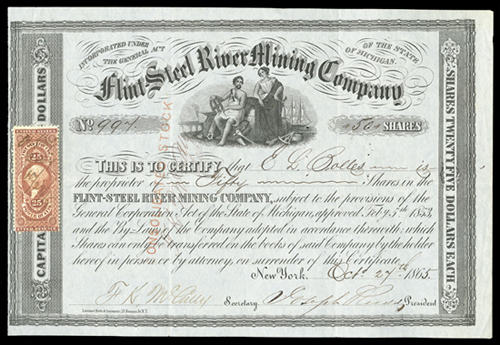 INCORPORATED UNDER THE GENERAL ACT
OF THE STATE OF MICHIGAN.
Flint-Steel River Mining Company
No. 994
50 SHARES
CAPITAL STOCK
DOLLARS
SHARES TWENTY FIVE DOLLARS EACH
25
25
THIS IS TO CERTIFY that E L Bolles is
the proprietor of Fifty Shares in the
FLINT-STEEL RIVER MINING COMPANY, subject to the provisions of the
General Corporation Act of the State of Michigan, approved Feby. 5th 1853,
and the By-Laws of the Company adopted in accordance therewith: which
Shares can only be transferred on the books of said Company by the holder
hereof in person or by attorney, on surrender of this Certificate.
New York. Oct 27th 1865
Secretary
Joseph
President